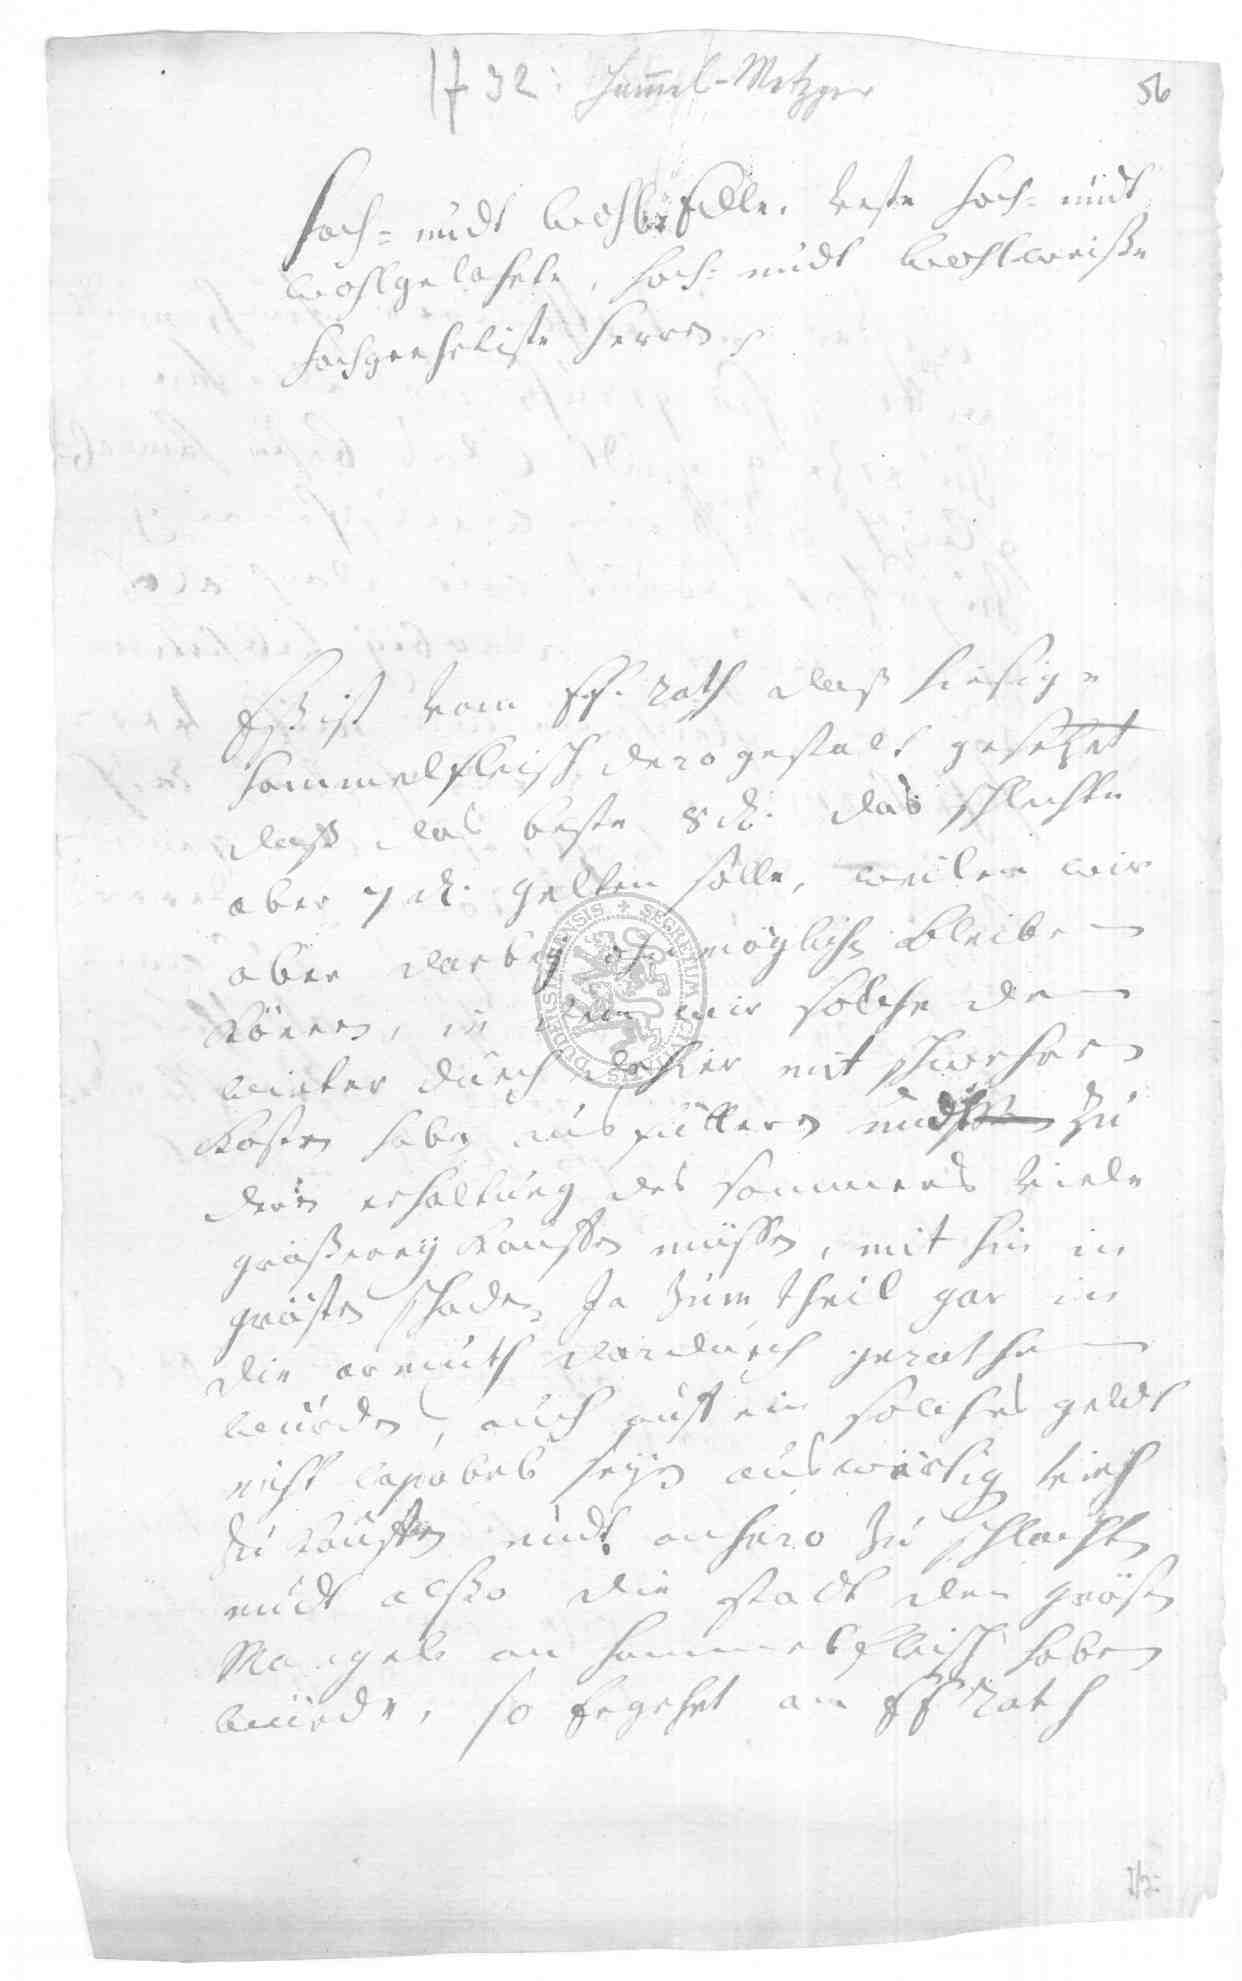 1732: Hammel-Metzger
56
Hoch- undt WohlEdle, Veste Hoch- undt
Wohlgelahrte, Hoch- undt Wohlweiße
Hochgeehrtiste Herren
Eß ist vom EH. Rath daß hiesige
Hammelfleisch dero gestalt gesetzet
daß das beste 8 d. das schlechte
aber 7 d. gelten solle, weilen wir
aber darbey ohnmöglich bleiben
können, in dem wir solche den
winter durch dahier mit schwehren
Kosten haben aus füttern undt zu
deren erhaltung des sommers viele
graßerey Kauffen müssen, mit hin in
grösten schaden Ja zum theil gar in
die armuth dardurch gerathen
würden, auch auff ein solches geldt
nicht capabel seyn auswärtig viech
zu Kauffen undt anhero zu schlachten
undt alßo die stadt den grösten
Mangel an Hammelfleisch haben
würde, so Ergehet an EH Rath
SECRETUM